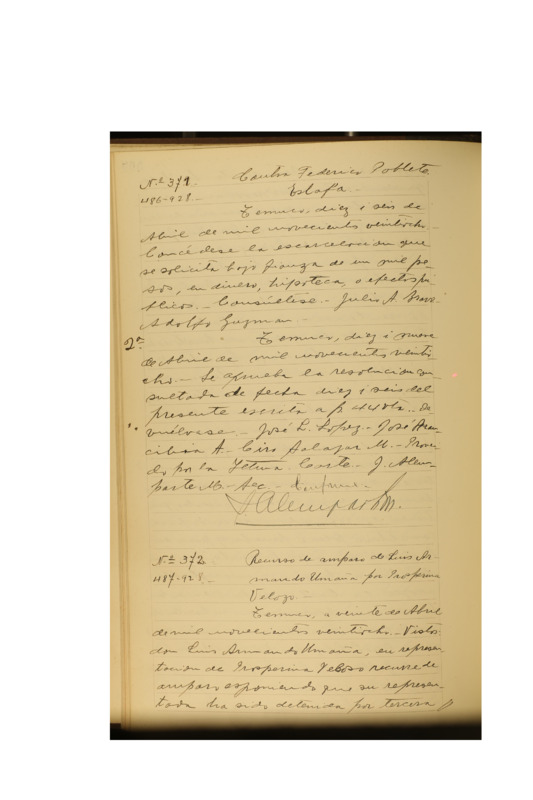 N.º 371
486-928.
Contra Federico Poblete
Estafa.
Temuco, diez i seis de
Abril de mil novecientos veintiocho.-
Concédese la escarcelacion que
se solicita bajo fianza de un mil pe-
sos, en dinero, hipoteca, o efectos pú-
blicos.- Consúltese.- Julio A. Bravo
Adolfo Guzman.-
2ª
Temuco, diez i nueve
de Abril de mil novecientos veintio-
cho.- Se aprueba la resolucion con-
sultada de fecha diez i seis del
presente escrita a f
vuélvase.- José L. Lopez.- José Aran-
cibia A.- Ciro Salazar M.- Provei-
do por la Iltma. Corte.- J. Alem-
parte M.- Sec.- Conforme.-
J Alemparte M.
N.º 372
487-928.-
Recurso de amparo de Luis Ar-
mando Umaña por Prosperina
Velozo.-
Temuco, a veinte de Abril
de mil novecientos veintiocho.- Vistos:
don Luis Armando Umaña, en represen-
tacion de Prosperina Veloso recurre de
amparo esponiendo que su represen-
tada ha sido detenida por tercera